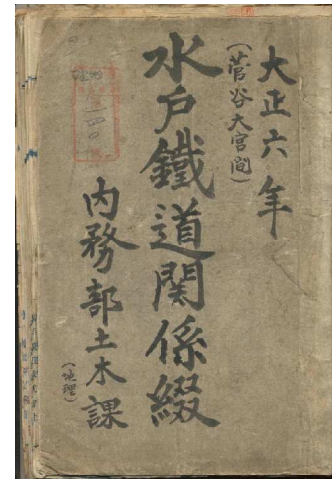 大正六年
(菅谷大宮間)
水戸鐵道関係綴
内務部土木課
(地理)